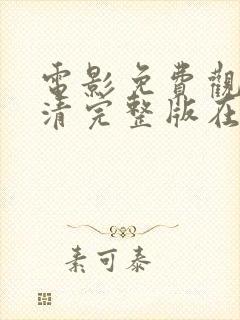 電影免費觀
清完整版在
素可泰